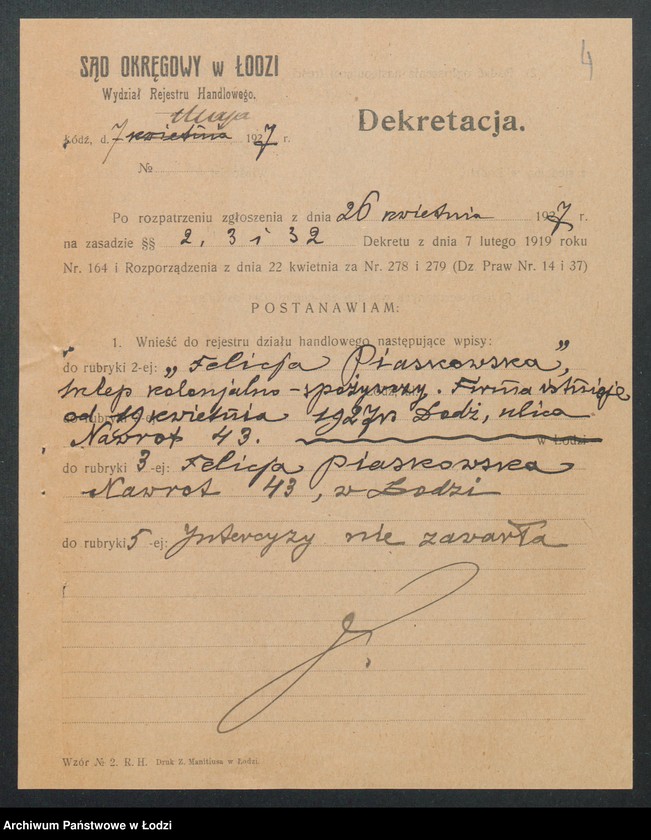 4
SĄD OKRĘGOWY w ŁODZI
Wydział Rejestru Handlowego.
Maja
Łódź, d. 7 kwietnia 1927 r.
№
Dekretacja.
Po rozpatrzeniu zgłoszenia z dnia 26 kwietnia 1927 r.
na zasadzie §§ 2, 3 i 32 Dekretu z dnia 7 lutego 1919 roku
Nr. 164 i Rozporządzenia z dnia 22 kwietnia za Nr. 278 i 279 (Dz Praw Nr. 14 i 37)
POSTANAWIAM:
1. Wnieść do rejestru działu handlowego następujące wpisy:
do rubryki 2-ej: „Felicja Piaskowska”,
sklep kolonjalno-spożywczy. Firma istnieje
od 19 kwietnia 1927 r. Łódź, ulica
Nawrot 43. w Łodzi
do rubryki 3-ej: Felicja Piaskowska
Nawrot 43, w Łodzi
do rubryki 5-ej: Intercyzy nie zawarła
Wzór № 2. R. H. Druk Z. Manitiusa w Łodzi.
Archiwum Państwowe w Łodzi